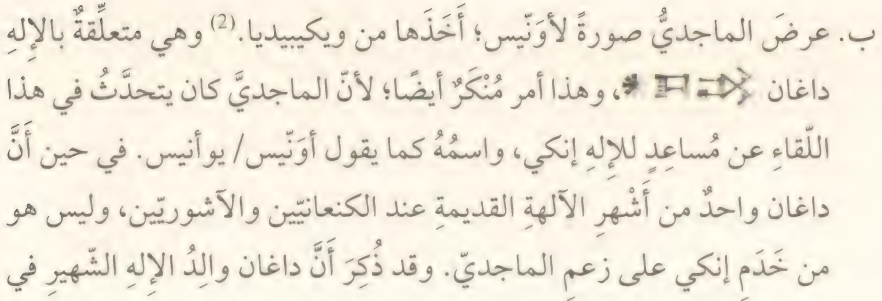 ب. عرضَ الماجديُّ صورةً لأوَنّيس؛ أَخَذَها من ويكيبيديا.(2) وهي متعلِّقةٌ بالإلهِ
داغان ، وهذا أمر مُنْكَرٌ أيضًا؛ لأنّ الماجديَّ كان يتحدَّثُ في هذا
اللّقاءِ عن مُساعِدٍ للإلهِ إنكي، واسمُهُ كما يقول أوَنّيس/ يوأنيس. في حين أَنَّ
داغان واحدٌ من أَشْهرِ الآلهةِ القديمةِ عند الكنعانيّين والآشوريّين، وليس هو
من خَدَمِ إنكي على زعمِ الماجديّ. وقد ذُكِرَ أَنَّ داغان والِدُ الإلهِ الشّهيرِ في